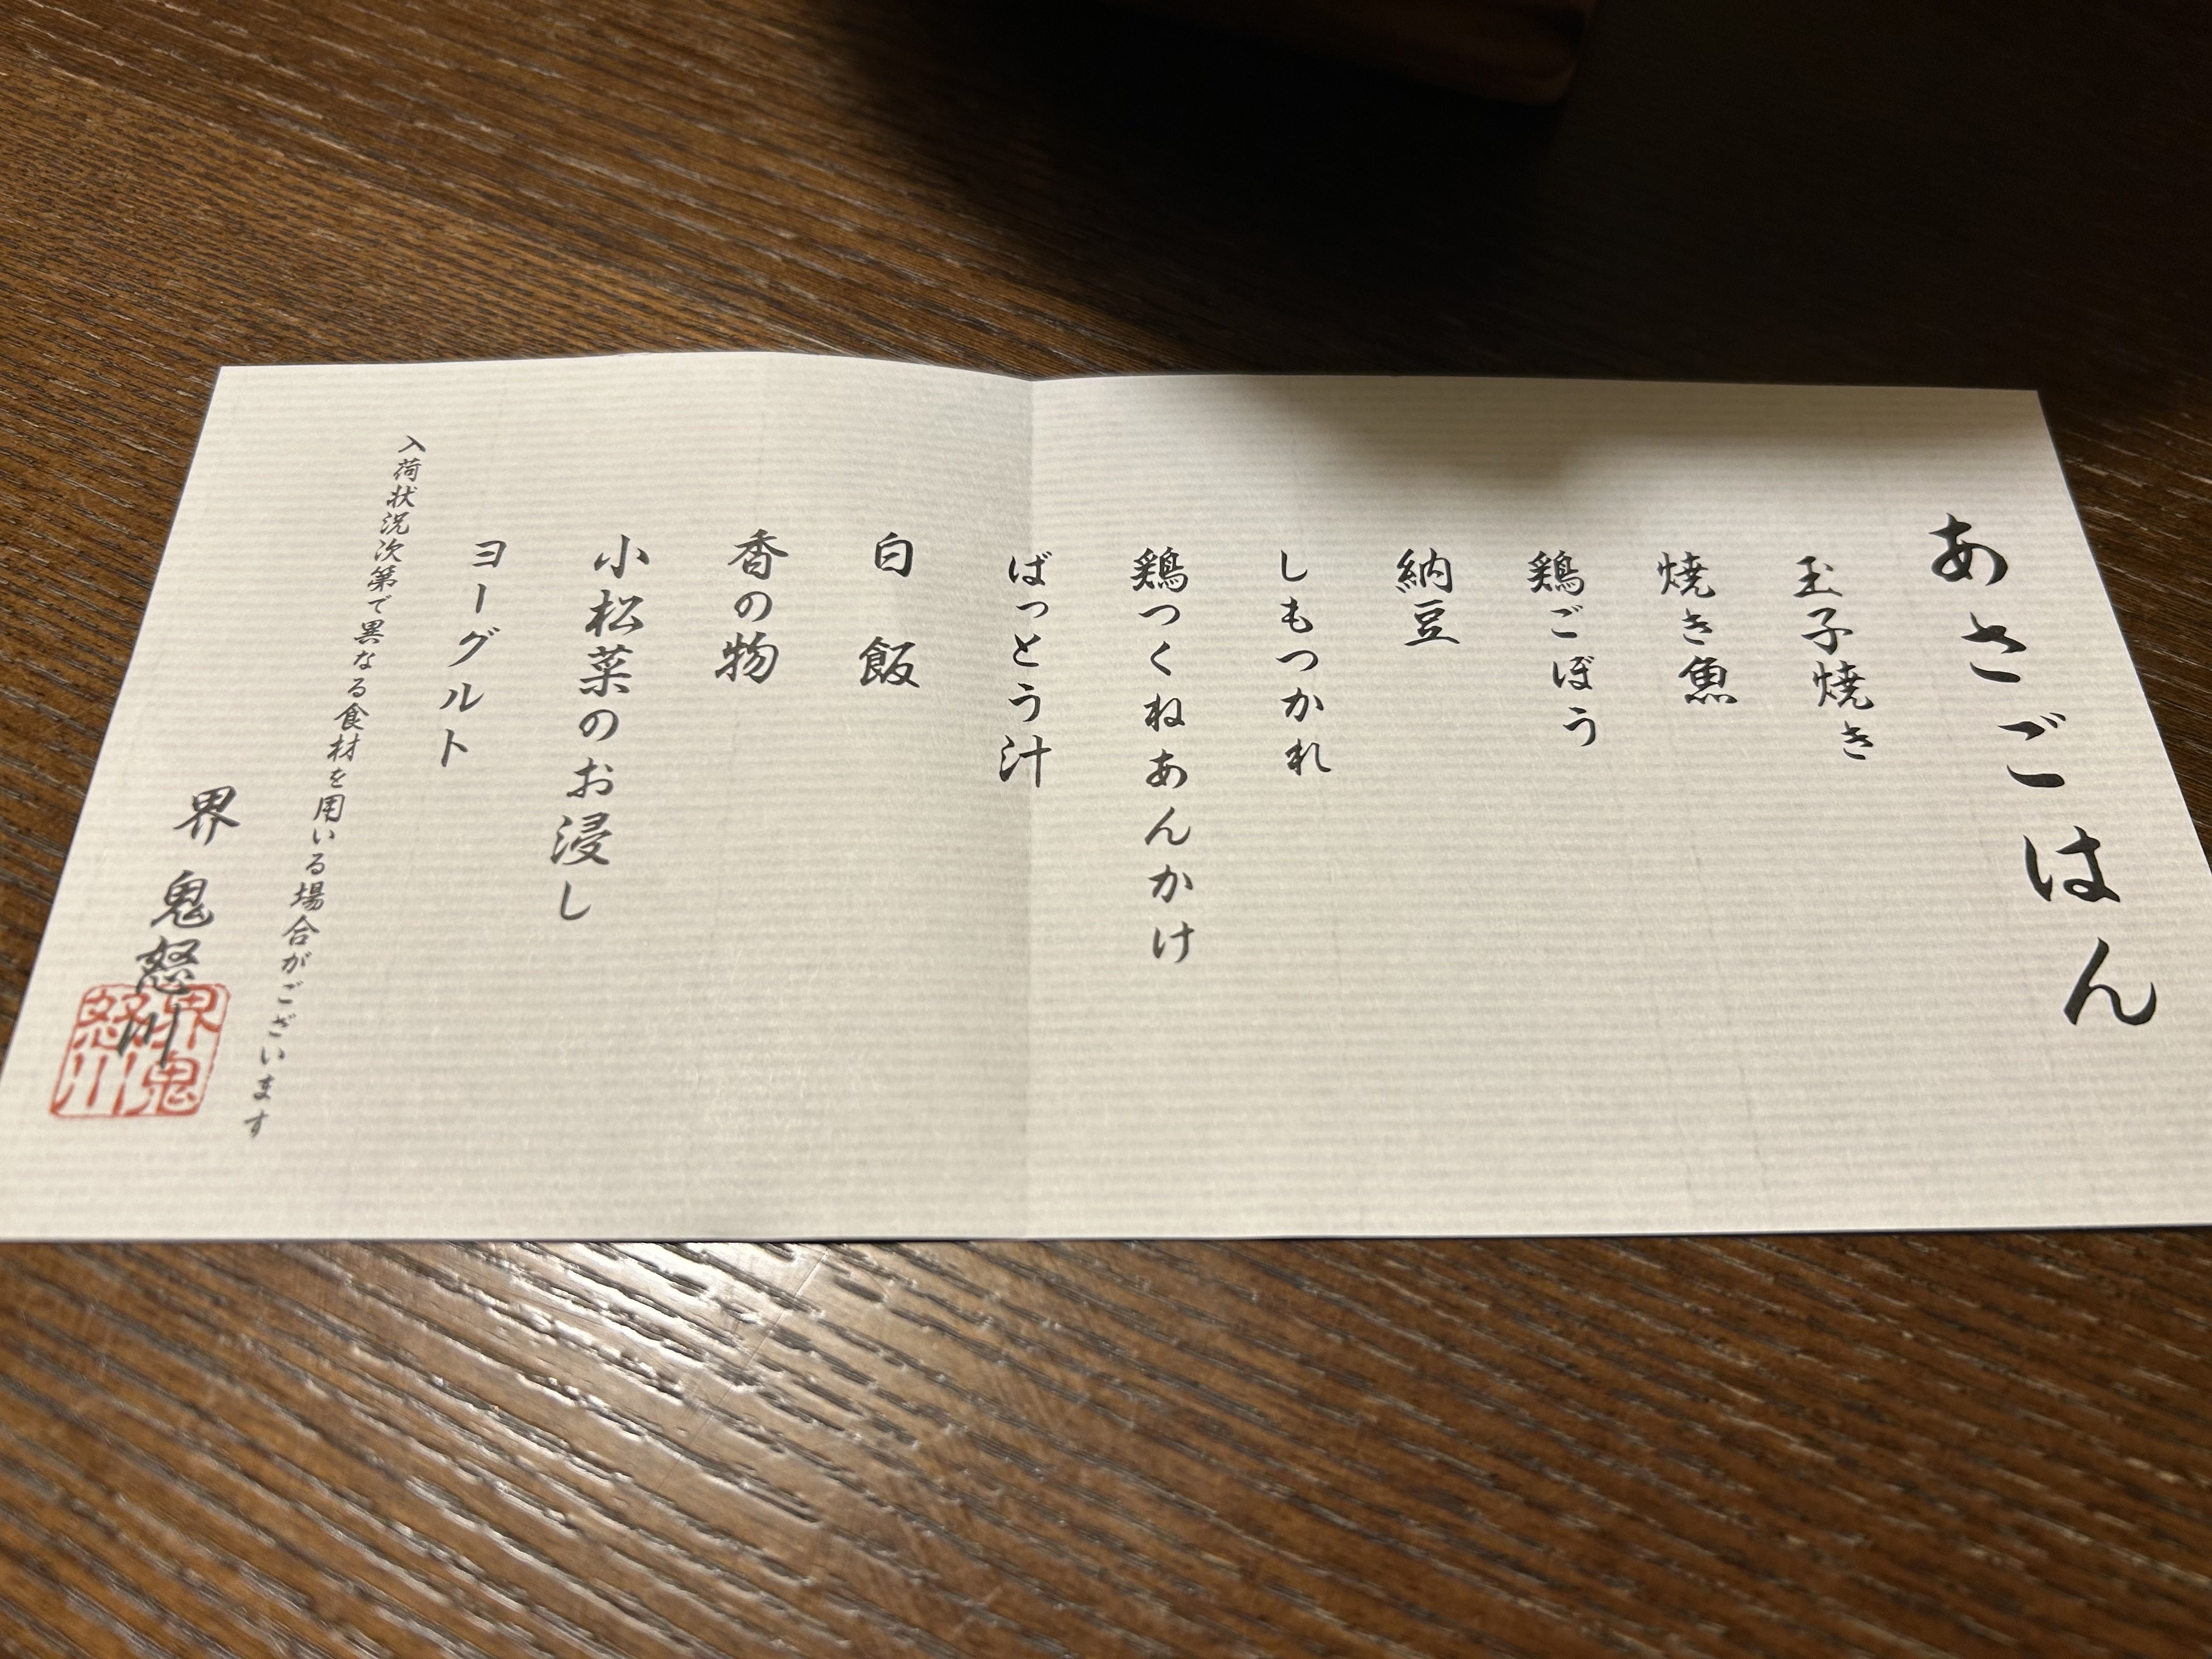 あさごはん
玉子焼き
焼き魚
鶏ごぼう
納豆
しもつかれ
鶏つくねあんかけ
ばっとう汁
白飯
香の物
小松菜のお浸し
ヨーグルト
入荷状況次第で異なる食材を用いる場合がございます
界 鬼怒川
界鬼
怒川